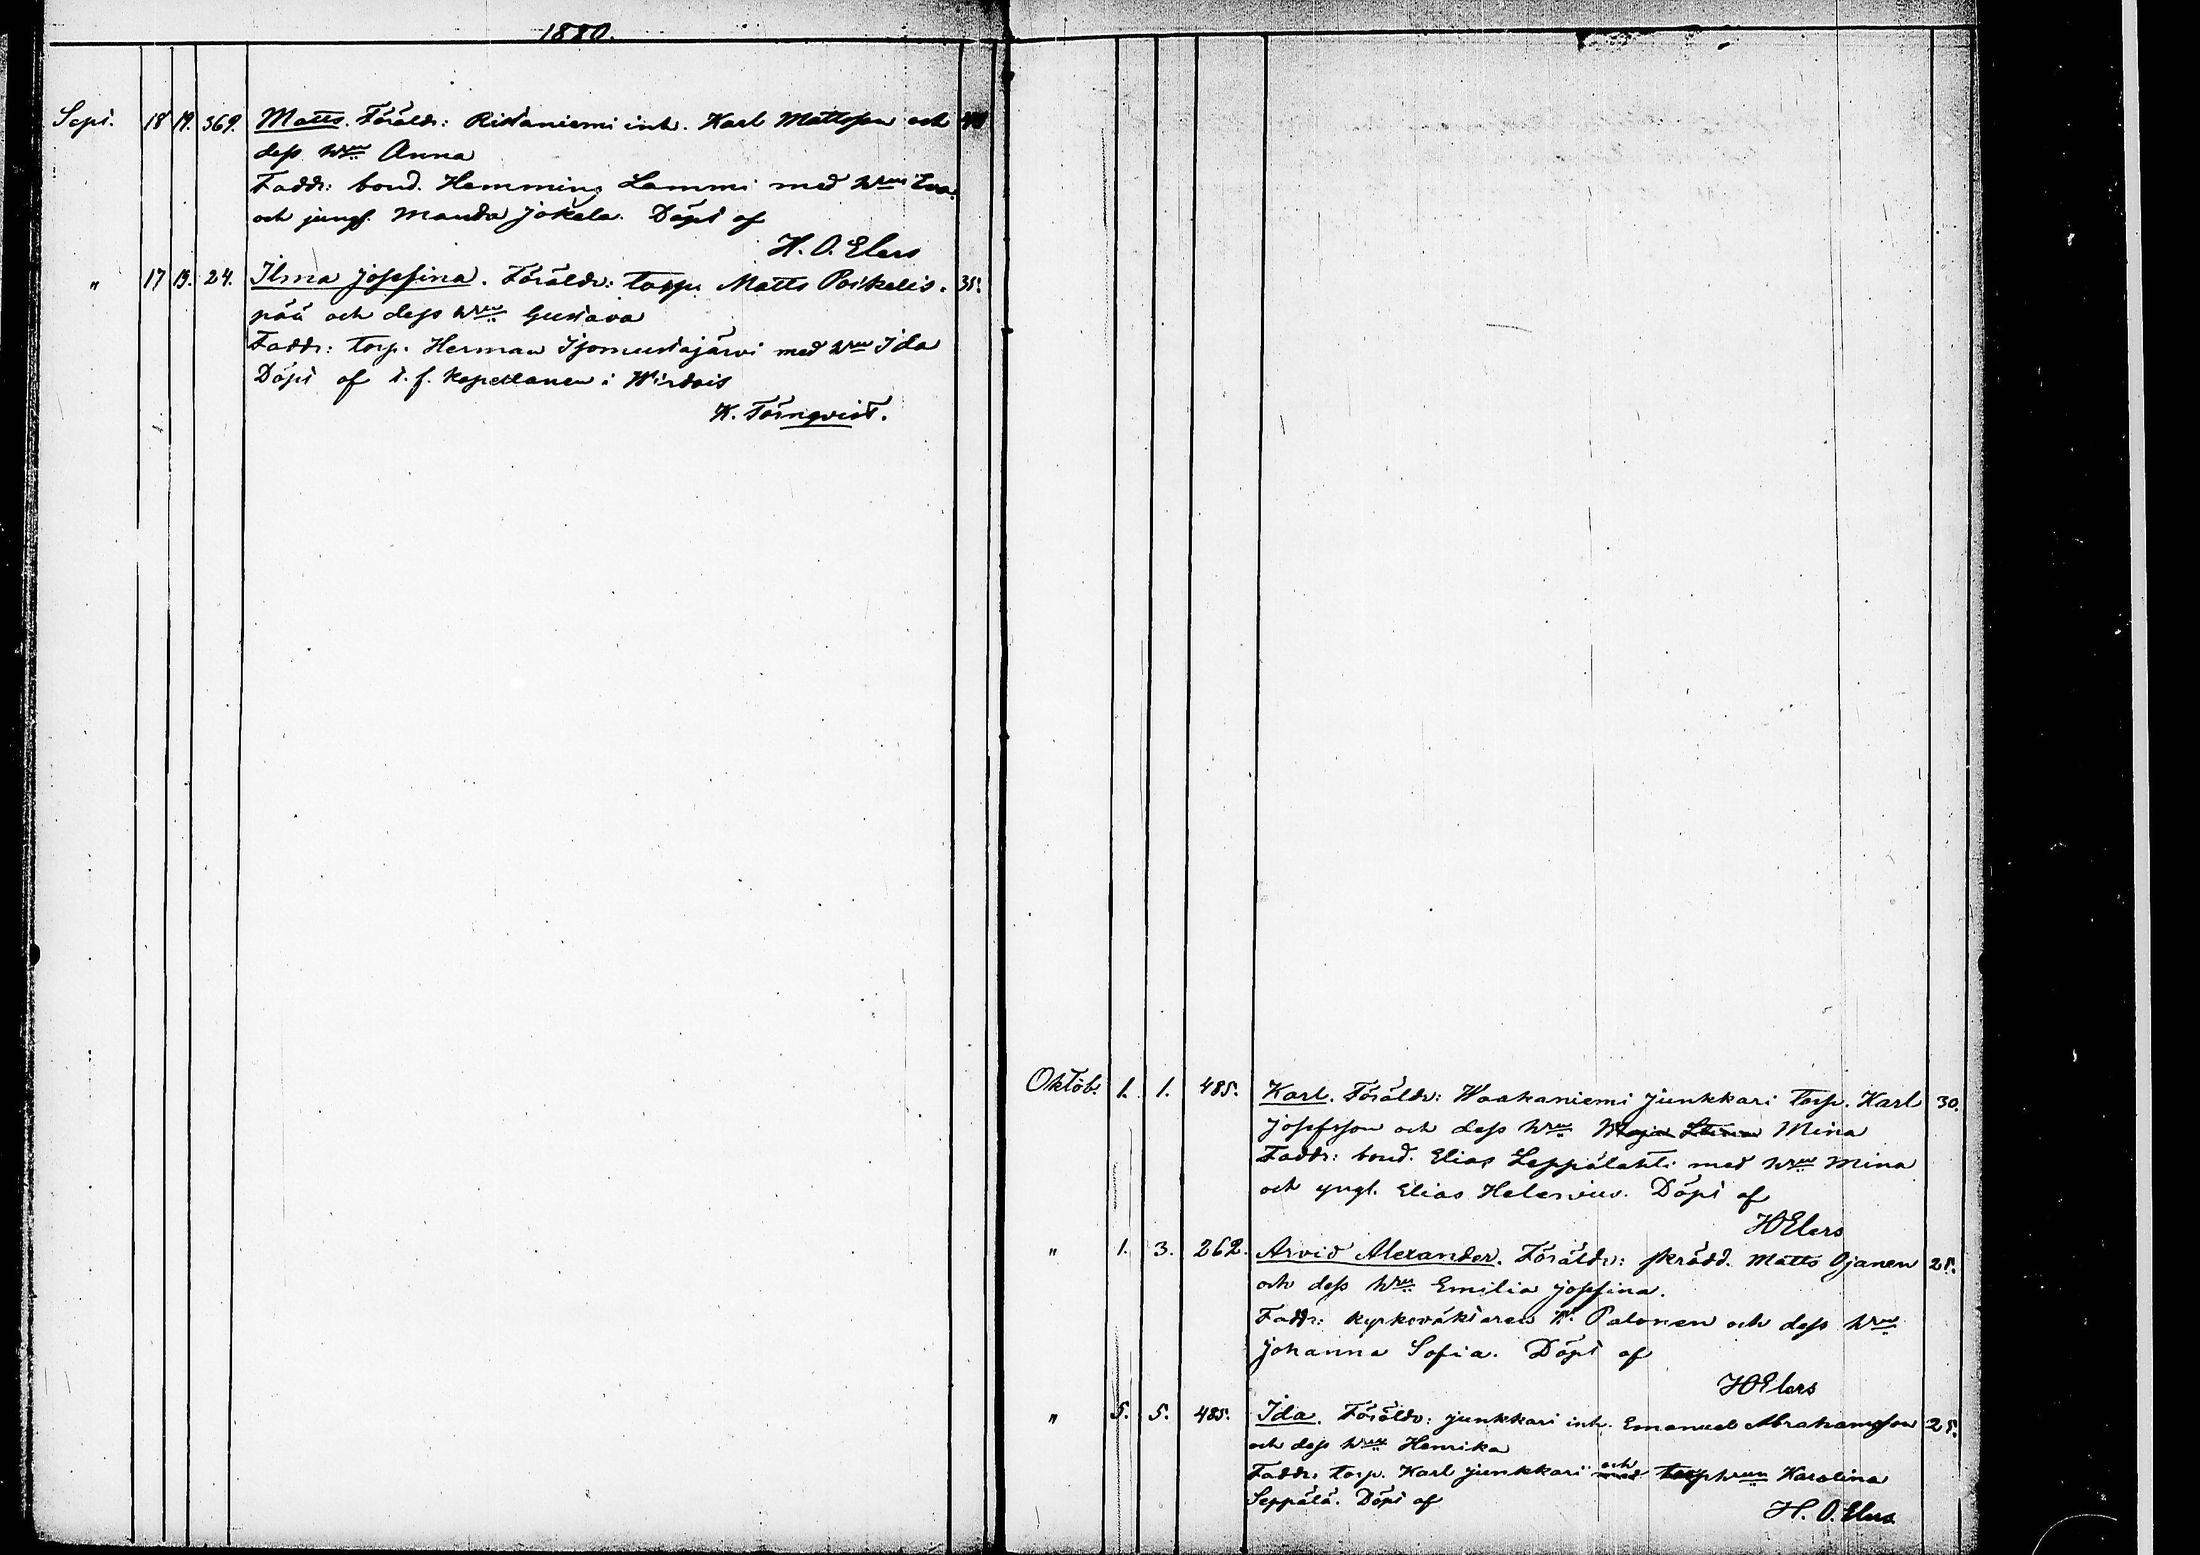 1880.
Sept. 18 19. 369. Matts. Föräldr: Ristaniemi inh. Karl Mattsson och
dess hru Anna
Faddr: bond. Hemming Lammi med hru Eva
och jungf. Manda Jokela. Döpt af
H. O. Elers
" 17 19. 24. Ilma Josefina. Föräldr: torp. Matts Poikelis- 35.
pää och dess hru Gustava
Faddr: torp. Herman Isomustajärvi med hru Ida
Döpt af t. f. kapellanen i Wirdois
K. Törnqvist.
Oktob. 1. 1. 485. Karl. Föräldr: Waakaniemi Junkkari torp. Karl 30.
Josefsson och dess hru Maja Stina Mina
Faddr: bond. Elias Leppälahti med hru Mina
och yngl. Elias Helenius. Döpt af
HOElers
" 1. 3. 262. Arvid Alexander. Föräldr: skrädd. Matts Ojanen 25.
och dess hru Emilia Josefina.
Faddr: kyrkováktaren K. Palonen och dess hru
Johanna Sofia. Döpt af
HOElers
" 5. 5. 485. Ida. Föräldr: Junkkari inh. Emanuel Abrahamsson 25.
och dess hru Henrika
Faddr: torp. Karl Junkkari med och torphrun Karolina
Seppälä. Döpt af
H. O. Elers